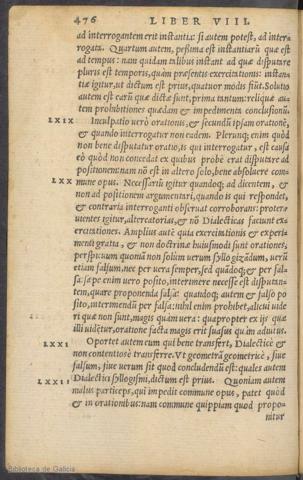 476 LIBER VIII.
ad interrogantem erit instantia: si autem potest, ad inter-
rogata. Quartum autem, pessima est instantiarū quæ est
ad tempus: nam quidam talibus instant ad quæ disputare
pluris est temporis, quàm præsentis exercitationis: instan-
tiæ igitur, ut dictum est prius, quatuor modis fiūt. Solutio
autem est earū quæ dictæ sunt, prima tantum: reliquæ au-
tem prohibitiones quædam & impedimenta conclusionū.
LXIX Inculpatio verò orationis, & secundū ipsam orationē,
& quando interrogatur non eadem. Plerunq; enim quòd
non bene disputatur oratio, is qui interrogatur, est causa
eò quòd non concedat ex quibus probè erat disputare ad
positionem: nam nō est in altero solo, bene absoluere com-
LXX mune opus. Necessariū igitur quandoq; ad dicentem, &
non ad positionem argumentari, quando is qui respondet,
& contraria interroganti obseruat corroborans: proter-
uientes igitur, altercatorias, & nō Dialecticas faciunt ex-
ercitationes. Amplius autē quia exercitationis & experi-
menti gratia, & non doctrinæ huiusmodi sunt orationes,
perspicuum quoniā non solùm verum syllogizādum, verū
etiam falsum, nec per vera semper, sed quādoq; & per fal-
sa: sæpe enim vero posito, interimere necesse est disputan-
tem, quare proponenda falsa: quandoq; autem & falso po
sito, interimendū per falsa: nihil enim prohibet, alicui vide
ri quæ non sunt, magis quàm vera: quapropter ex ijs quæ
illi vidētur, oratione facta magis erit suasus quàm adiutus.
LXXI Oportet autem eum qui bene transfert, Dialecticè &
non contentiosè transferre. Vt geometrā geometricè, siue
falsum, siue verum sit quod concludendū est: quales autem
LXXII Dialectici syllogismi, dictum est prius. Quoniam autem
malus particeps, qui impedit commune opus, patet quòd
& in orationibus: nam commune quippiam quod propo-
nitur
Biblioteca de Galicia